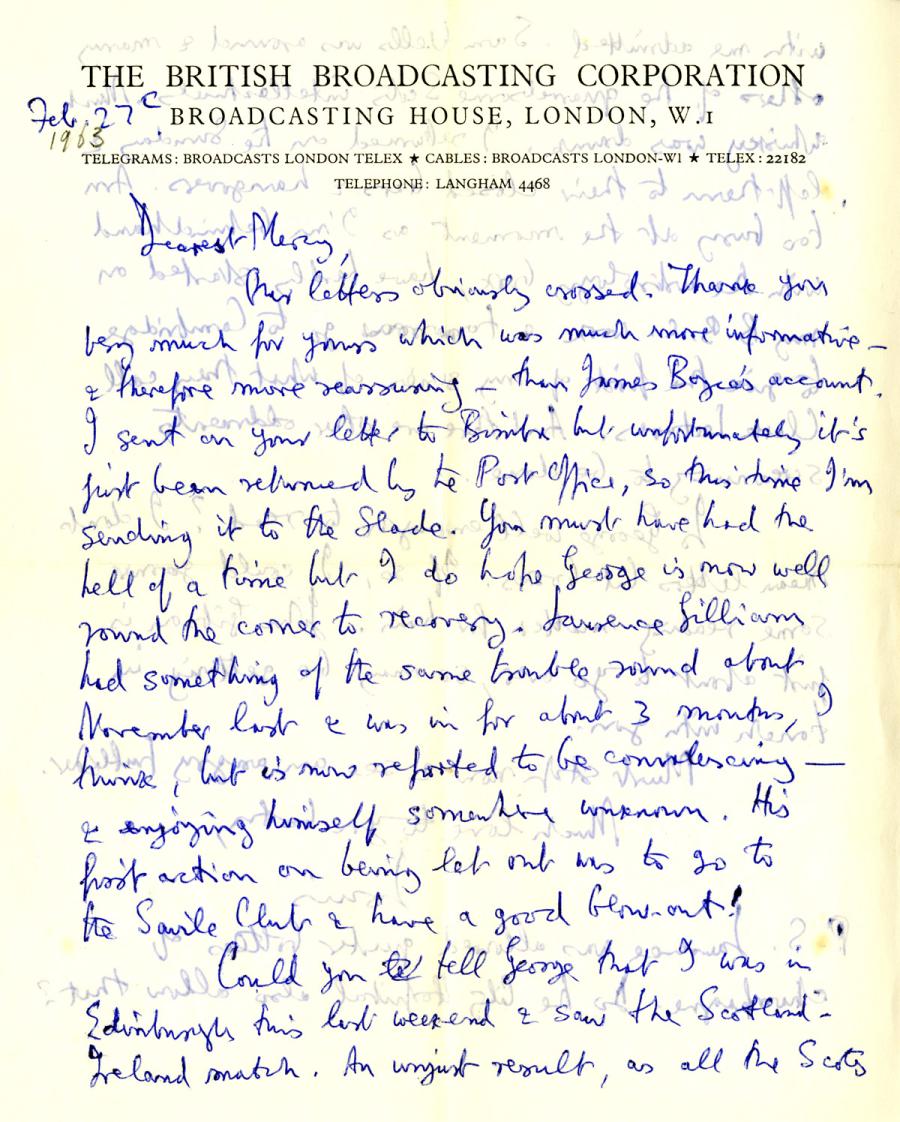 THE BRITISH BROADCASTING CORPORATION
Feb. 27th
BROADCASTING HOUSE, LONDON, W.1
1963
TELEGRAMS: BROADCASTS LONDON TELEX ★ CABLES: BROADCASTS LONDON-W1 ★ TELEX: 22182
TELEPHONE: LANGHAM 4468
Dearest Mercy,
Our letters obviously crossed. Thank you
very much for yours which was much more informative —
& therefore more reassuring — than James Boyce's account.
I sent on your letter to Bimba but unfortunately it's
just been returned by the Post Office, so this time I'm
sending it to the Slade. You must have had the
hell of a time but I do hope George is now well
round the corner to recovery. Laurence Gilliam
had something of the same trouble round about
November last & was in for about 3 months, I
think, but is now reported to be convalescing —
& enjoying himself somewhere unknown. His
first action on being let out was to go to
the Savile Club & have a good blow-out!
Could you tell George that I was in
Edinburgh this last weekend & saw the Scotland-
Ireland match. An unjust result, as all the Scots